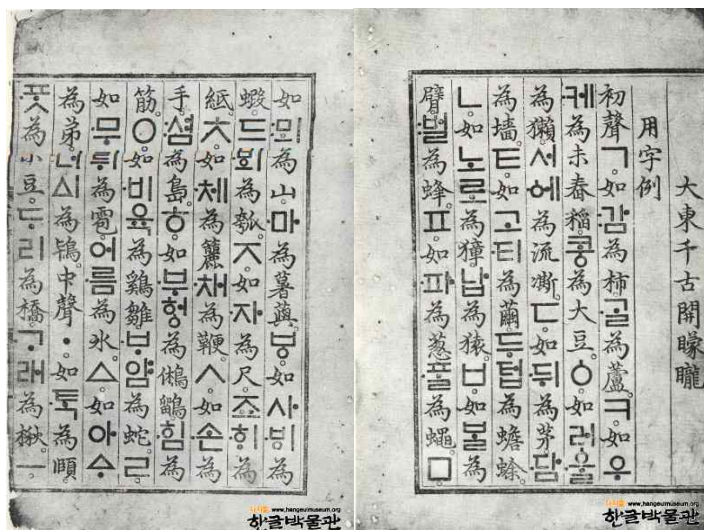 大東千古開矇矓
用字例
初聲ㄱ如감為柿ᄀᆞᆯ為蘆ㅋ如우
케為未舂稻콩為大豆ㆁ如러ᅌᅮᆯ
為獺서ᅌᅦ為流凘ㄷ如뒤為茅담
為墻ㅌ如고티為繭두텁為蟾蜍
ㄴ如노로為獐납為猿ㅂ如ᄇᆞᆯ為
臂벌為蜂ㅍ如파為葱ᄑᆞᆯ為蠅ㅁ
如뫼為山마為薯藇ㅸ如사ᄫᅵ為
蝦드ᄫᅴ為瓠ㅈ如자為尺죠ᄒᆡ為
紙ㅊ如체為籭채為鞭ㅅ如손為
手셤為島ㅎ如부헝為鵂鶹힘為
筋ㅇ如비육為鷄雛ᄇᆞ얌為蛇ㄹ
如무뤼為雹어름為氷ㅿ如아ᅀᆞ
為弟너ᅀᅵ為鴇中聲ㆍ如ᄐᆞᆨ為頤
ᄑᆞᆺ為小豆ᄃᆞ리為橋ᄀᆞ래為楸ㅡ
www.hangeulmuseum.org
한글박물관
www.hangeulmuseum.org
한글박물관